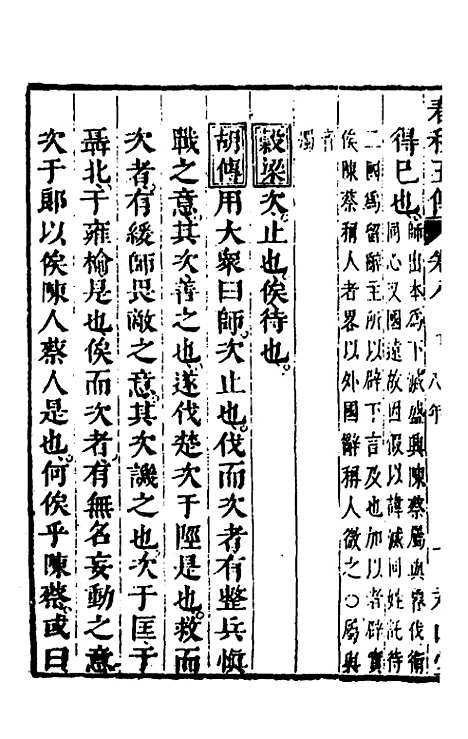 春秋五傳 卷八 八年
得已也師出本爲下滅盛興陳蔡屬與衛伐衛
同心又國遠故因假以諱滅同姓託待
二國爲留辭主所以辟下言及也加以者辟實
俟陳蔡稱人者畧以外國辭稱人微之○屬與
音
濁
穀梁次止也俟待也
胡傳用大衆曰師次止也伐而次者有整兵慎
戰之意其次善之也遂伐楚次于陘是也救而
次者有緩師畏敵之意其次譏之也次于匡于
聶北于雍榆是也俟而次者有無名妄動之意
次于郎以俟陳人蔡人是也何俟乎陳蔡或曰